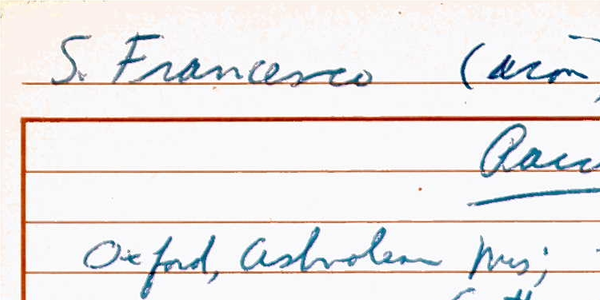 S. Francesco (acon
Oxford, Ashmolean Mus;